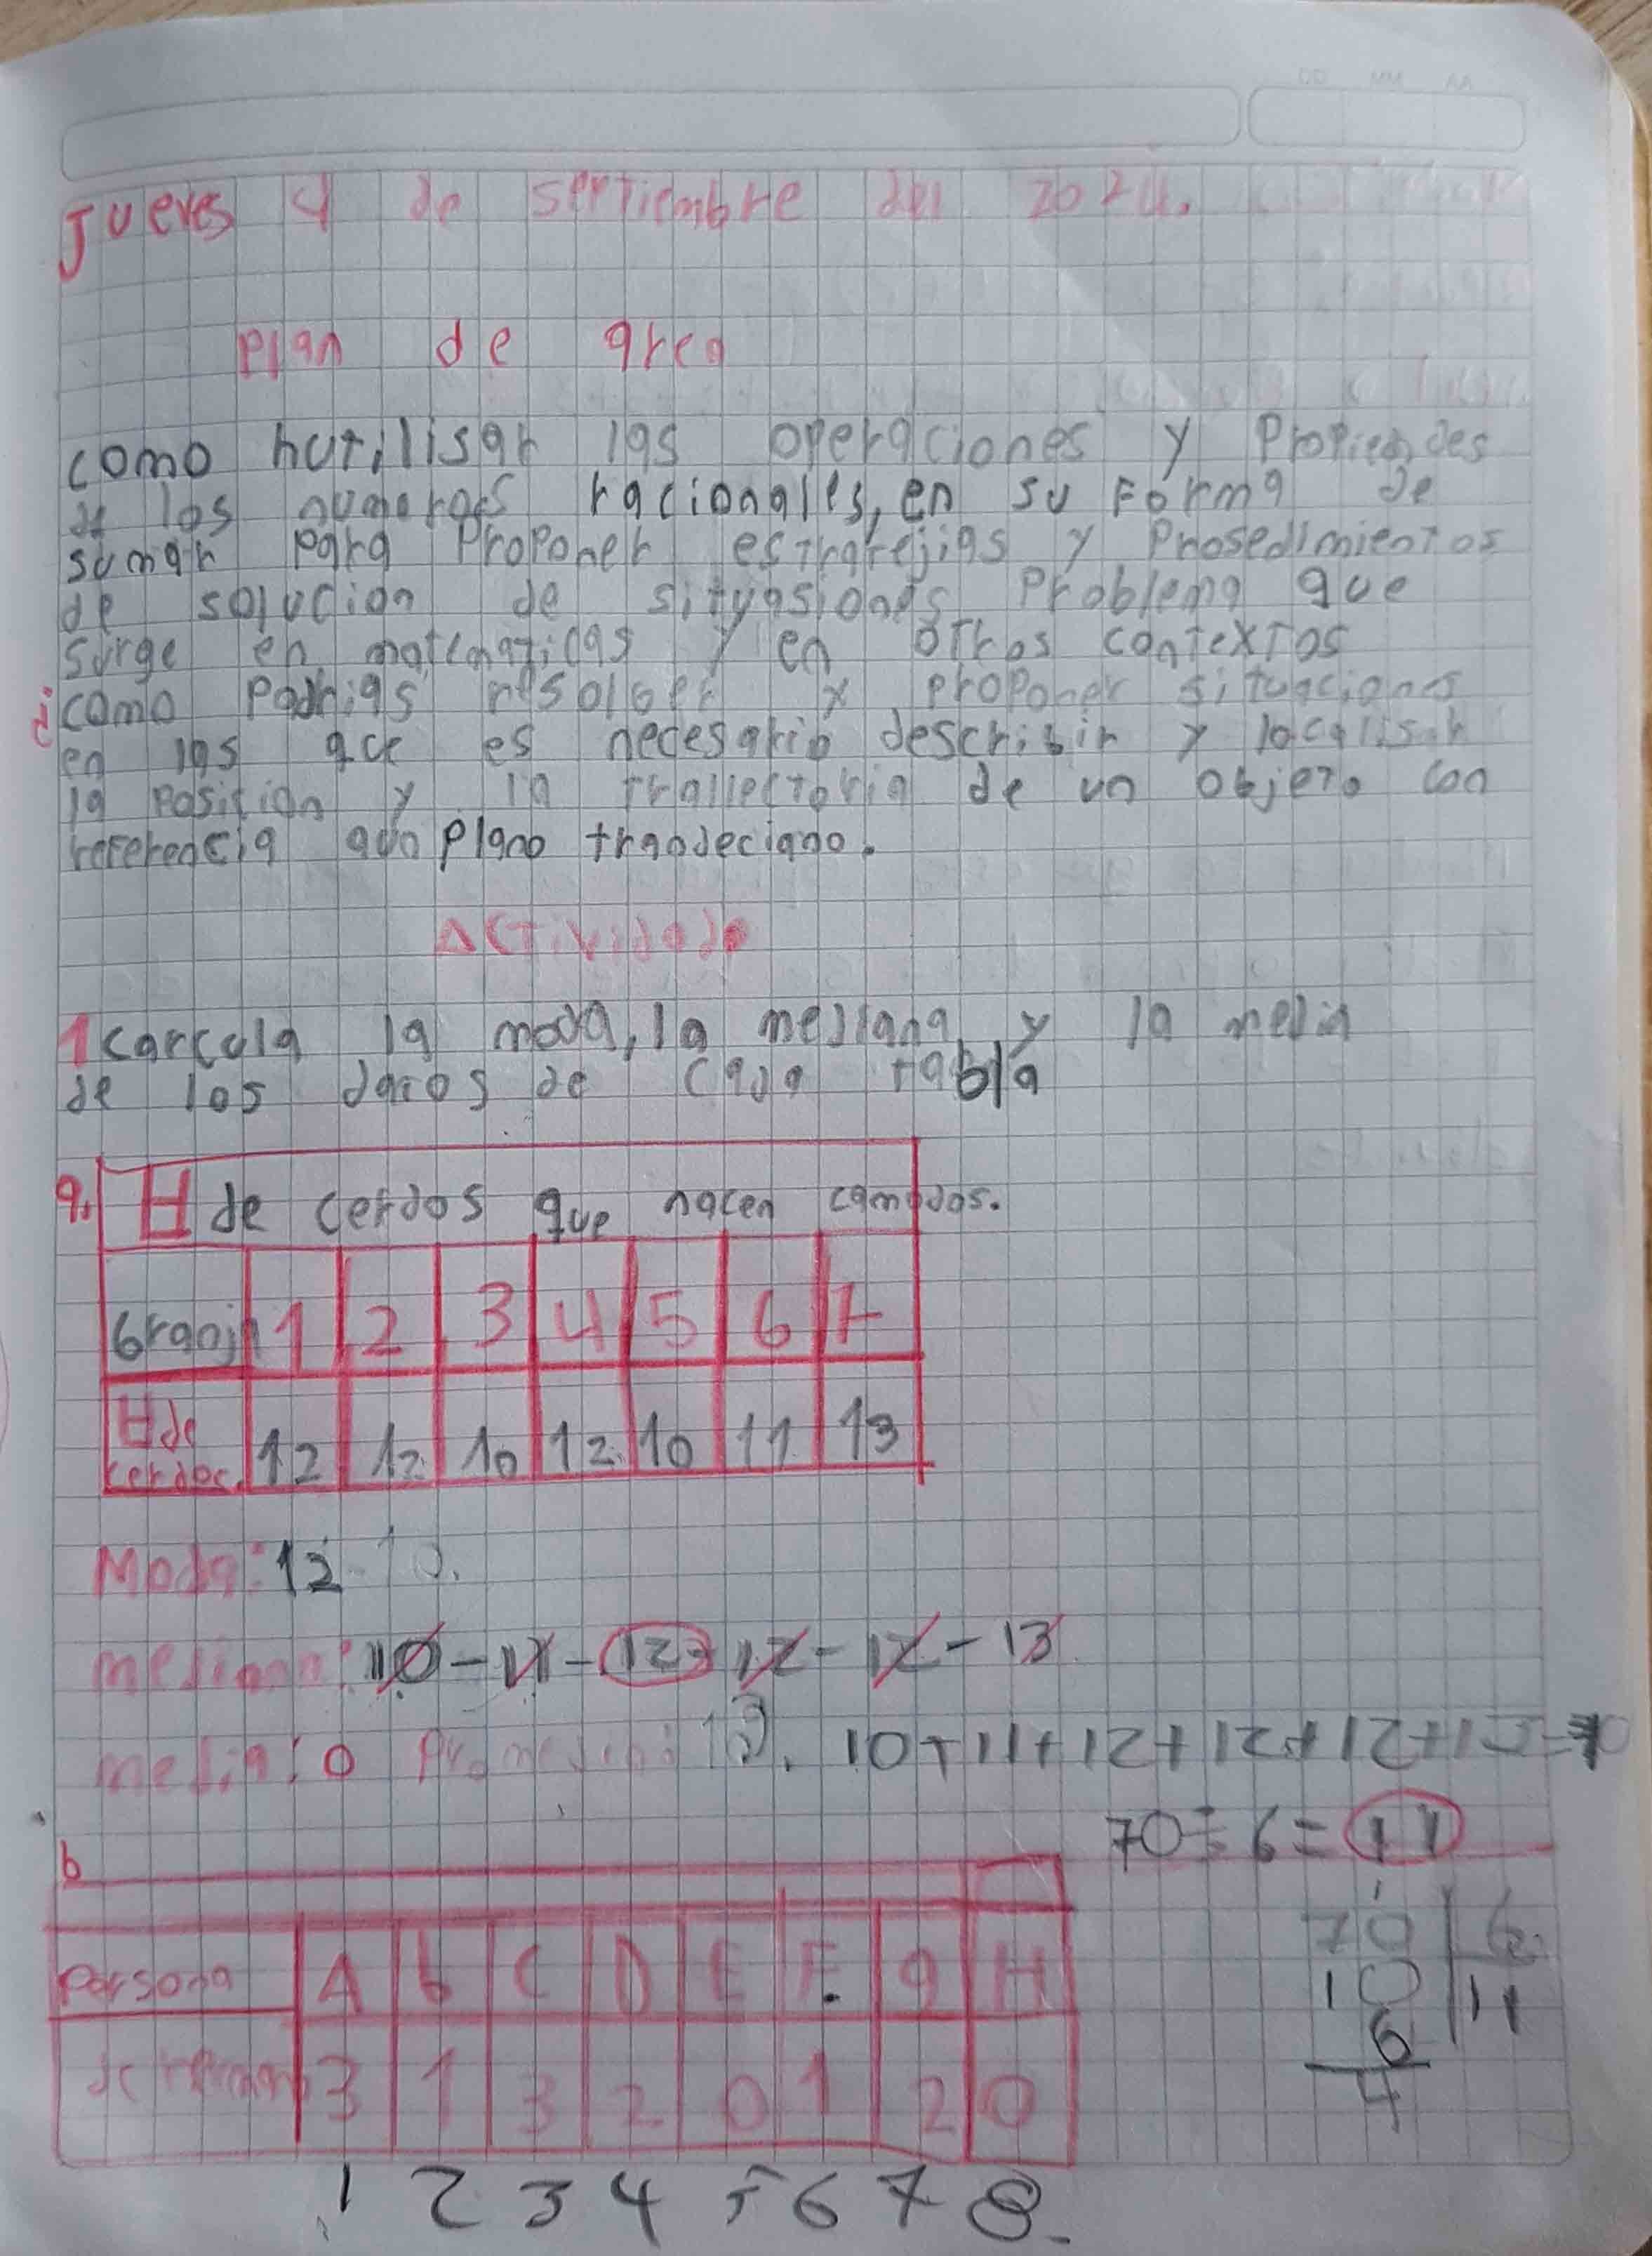 Jueves 4 de septiembre del 2024.
plan de area
como hutilisar las operaciones y Propiedades
de los numeros racionales, en su Forma de
sumar para Proponer estratejias y Prosedimientos
de solucion de situasiones Problema que
surge en matematicas y en otros contextos
d. como Podrias resolber y proponer situaciones
en las que es necesario describir y localisar
la Posicion y la trallectoria de un objeto con
referencia aun plano
Actividade
1 carcula la moda, la mediana y la media
de los datos de cada tabla
a. H de cerdos que nacen
Granj 1 2 3 4 5 6 7
H de cerdos. 12 12 10 12 10 11 13
Moda: 12
mediana: 10 - 11 - 12 - 12 - 12 - 13
media: o Promedio 10+11+12+12+12+13=70
70÷6=11
b
70 6
10 11
6
4
Persona A b C D E F. g H
de herman 3 1 3 2 0 1 2 0
1 2 3 4 5 6 7 8